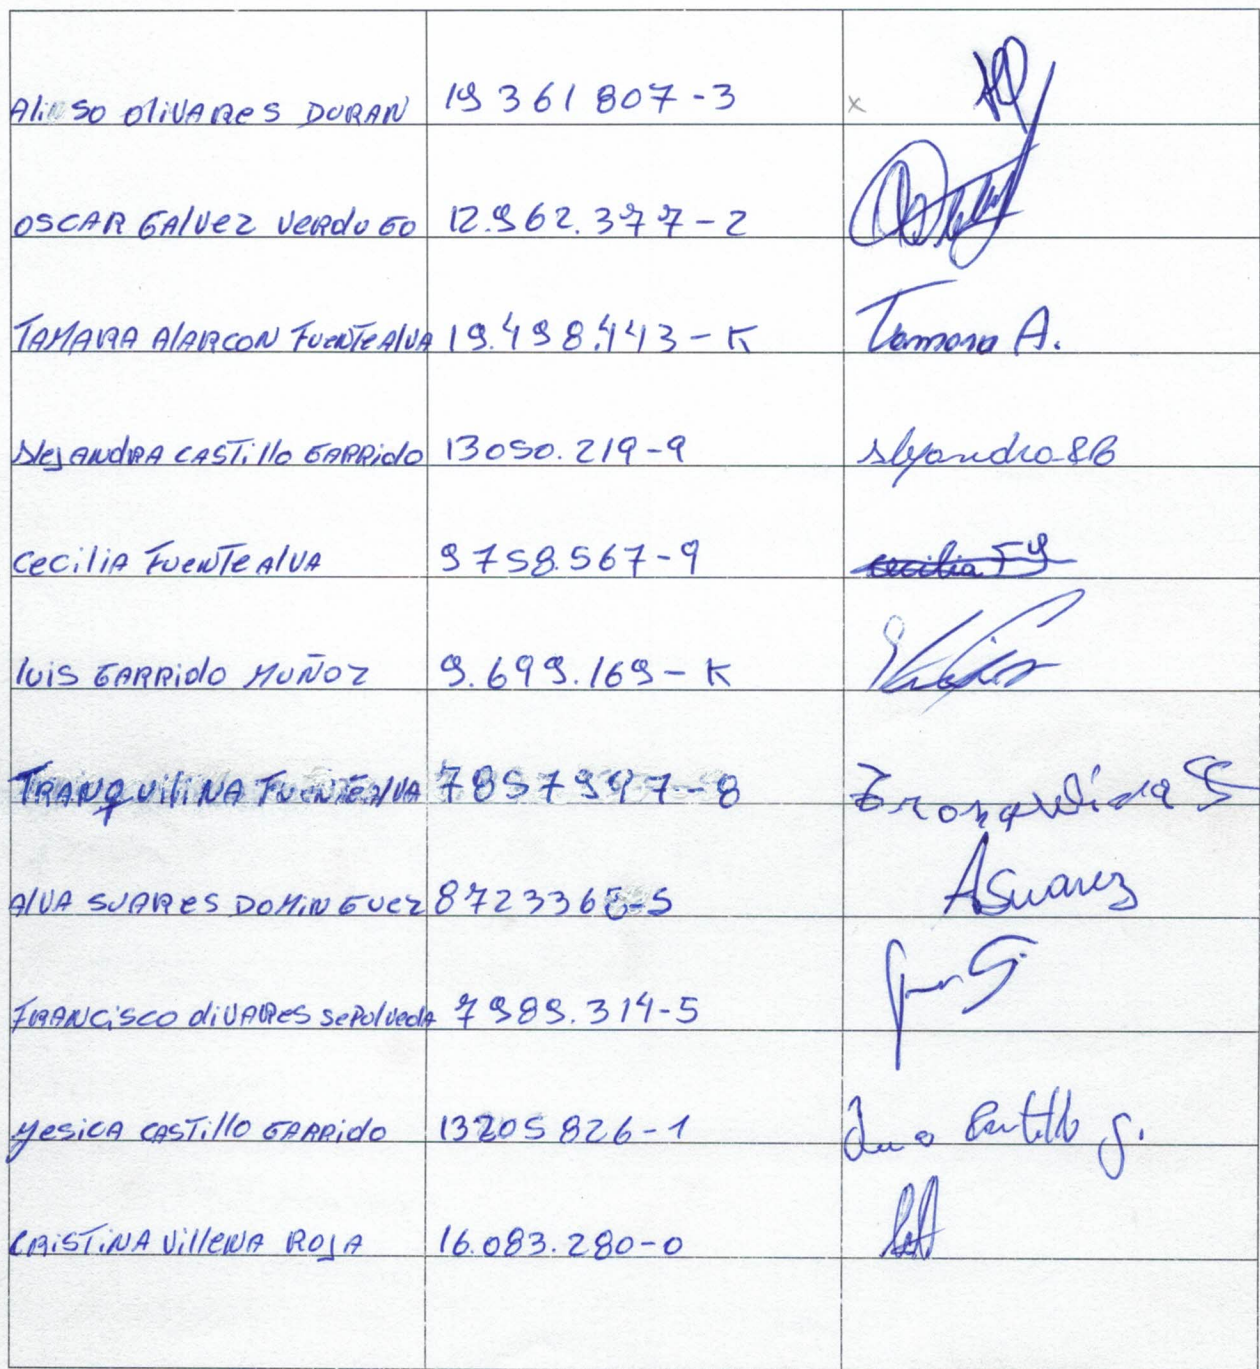 OLIVARES DURAN 19 361 807-3 x
OSCAR GALVEZ VERDUGO 12.962.377-2
TAMARA ALARCON FUENTEALVA 19.498.443-K Tamara A.
ALEJANDRA CASTILLO GARRIDO 13050.219-9 Alejandra
CECILIA FUENTEALVA 9758.567-9 cecilia
LUIS GARRIDO MUÑOZ 9.699.169-K
TRANQUILINA FUENTEALVA
ALVA SUARES DOMINGUEZ ASuarez
FRANCISCO OLIVARES SEPOLVEDA 7989.314-5
YESICA CASTILLO GARRIDO 13205826-1 Castillo G.
CRISTINA VILLENA ROJA 16.083.280-0